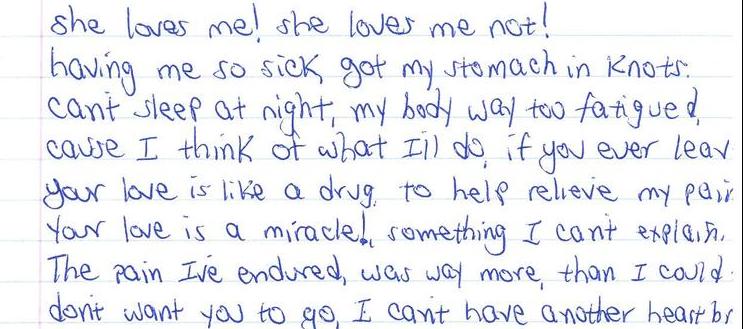 she loves me! she loves me not!
having me so sick, got my stomach in knots.
cant sleep at night, my body way too fatigued,
cause I think of what I'll do, if you ever leav
your love is like a drug, to help relieve my pain
Your love is a miracle!, something I can't explain.
The pain I've endured, was way more, than I could
don't want you to go, I can't have another heart br